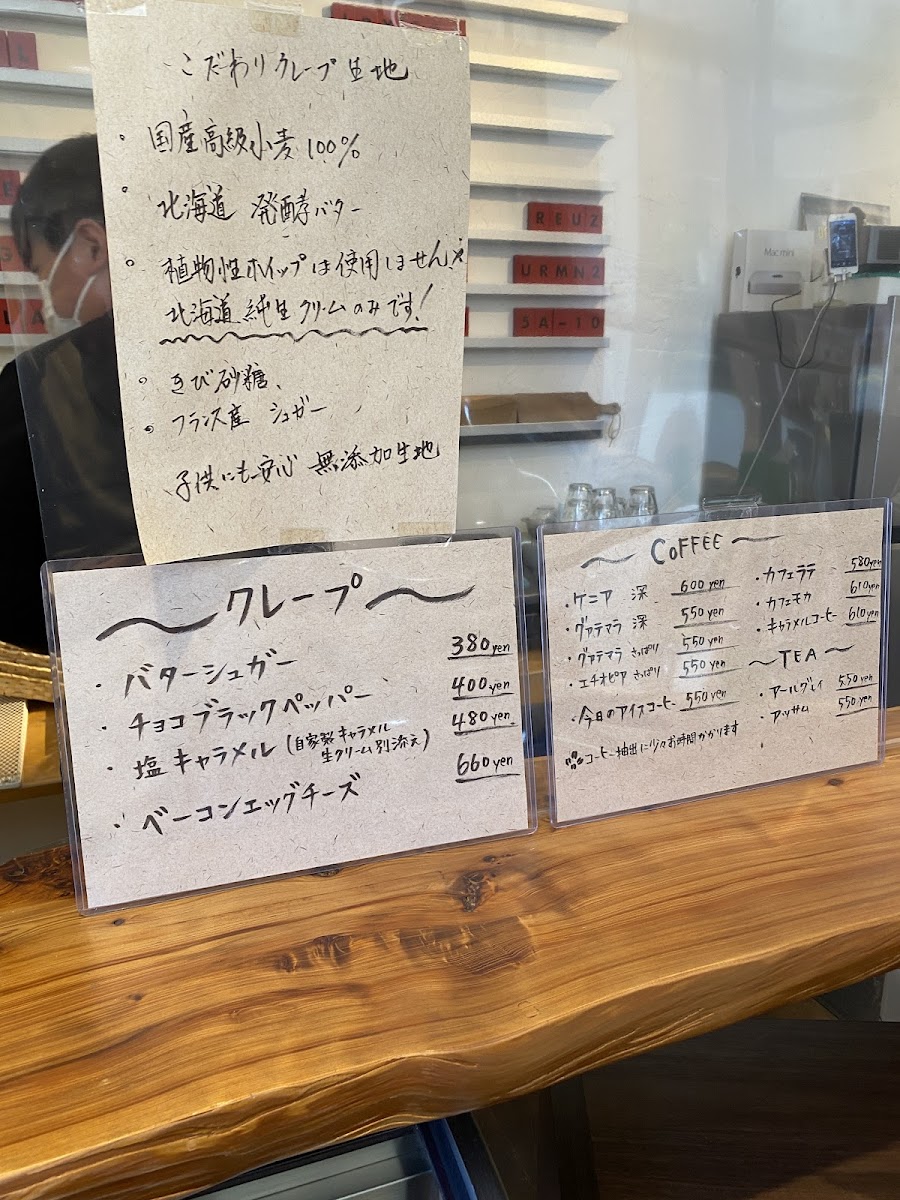 こだわりクレープ生地
・国産高級小麦100%
・北海道 発酵バター
・植物性ホイップは使用しません
北海道純生クリームのみです!
・きび砂糖、
・フランス産 シュガー
子供にも安心 無添加生地
REU2
URMN2
5A-10
Mac mini
クレープ
・バターシュガー 380yen
・チョコブラックペッパー 400yen
・塩キャラメル(自家製キャラメル 480yen
生クリーム別添え)
・ベーコンエッグチーズ 660yen
COFFEE
・ケニア 深 600yen
・グァテマラ 深 550yen
・グァテマラ さっぱり 550yen
・エチオピア さっぱり 550yen
・今日のアイスコーヒー 550yen
・カフェラテ 580yen
・カフェモカ 610yen
・キャラメルコーヒー 610yen
〜TEA〜
・アールグレイ 550yen
・アッサム 550yen
コーヒー抽出に少々お時間かかります